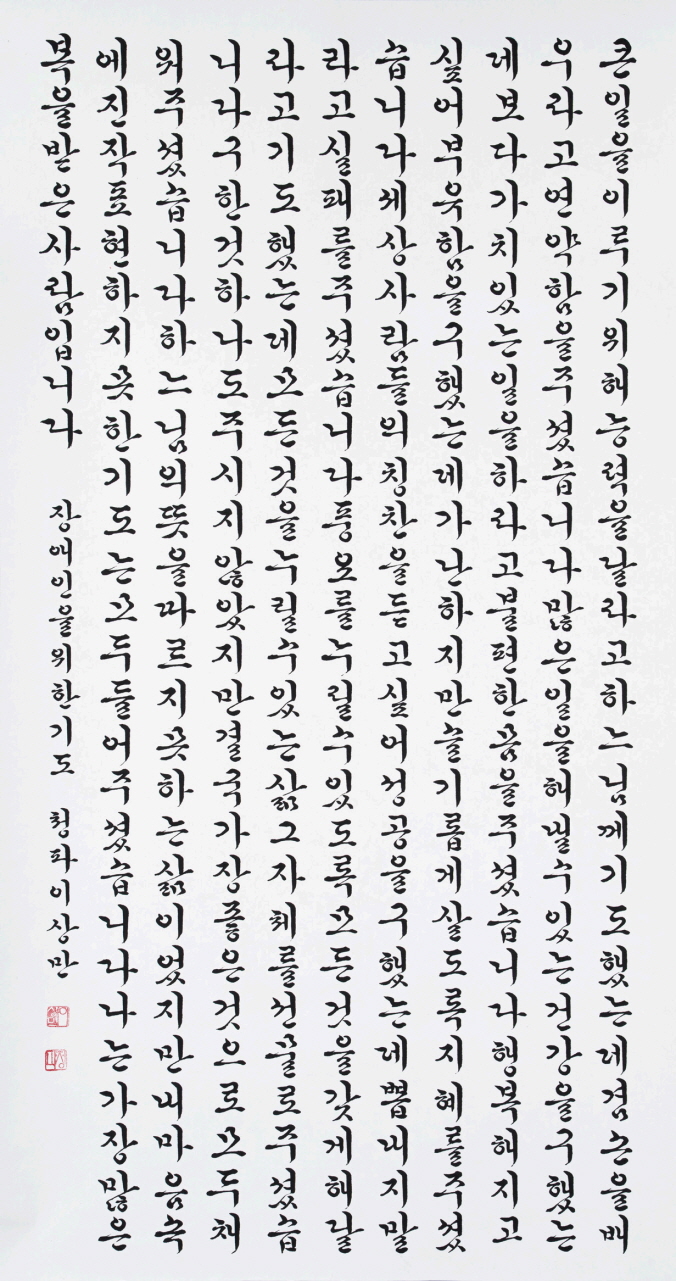 큰일을이루기위해능력을달라고하느님께기도했는데겸손을배
우라고연약함을주셨습니다많은일을해낼수있는건강을구했는
데보다가치있는일을하라고불편한몸을주셨습니다행복해지고
싶어부유함을구했는데가난하지만슬기롭게살도록지혜를주셨
습니다세상사람들의칭찬을듣고싶어성공을구했는데뽐내지말
라고실패를주셨습니다풍요를누릴수있도록모든것을갖게해달
라고기도했는데모든것을누릴수있는삶그자체를선물로주셨습
니다구한것하나도주시지않았지만결국가장좋은것으로모두채
워주셨습니다하느님의뜻을따르지못하는삶이었지만내마음속
에진작표현하지못한기도는모두들어주셨습니다나는가장많은
복을받은사람입니다 장애인을위한기도 청파이상만